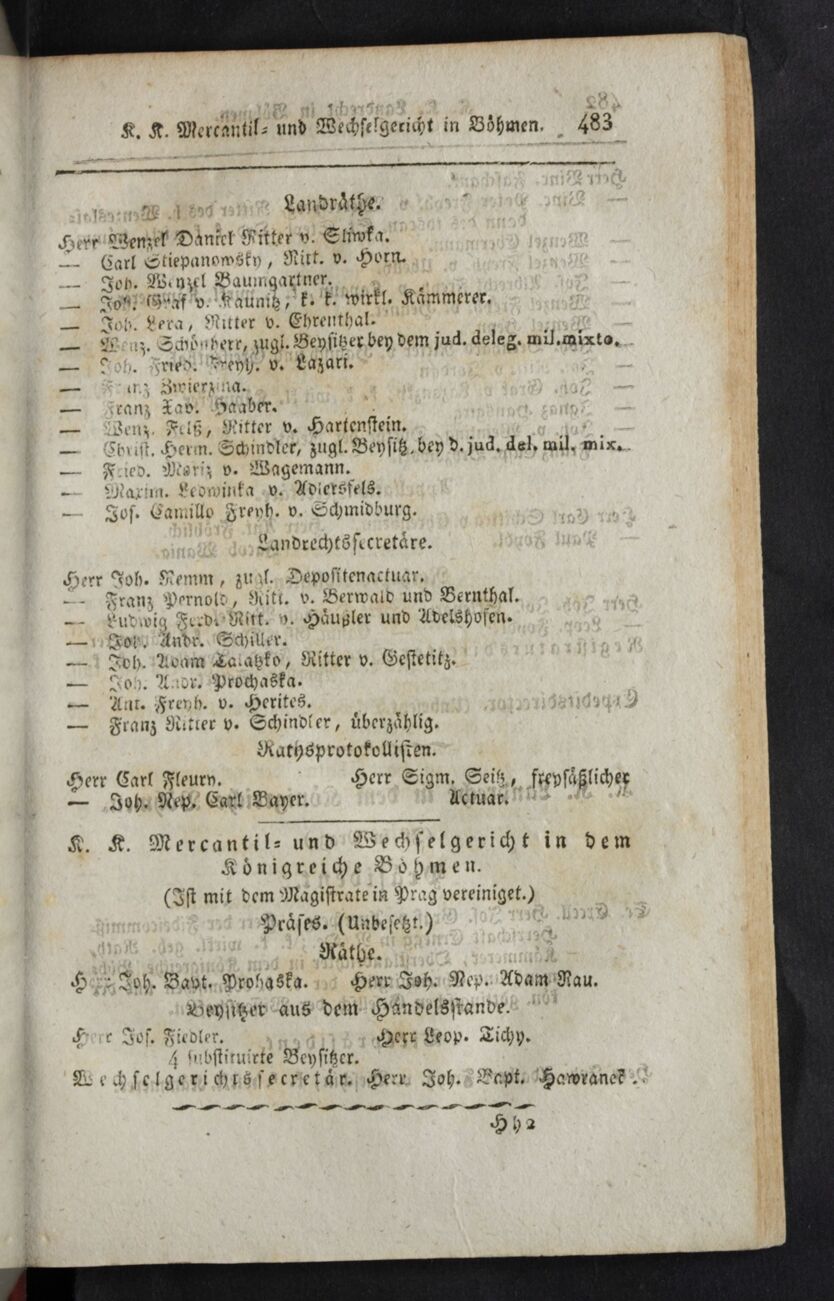 K. K. Mercantil- und Wechselgericht in Böhmen. 483
Landräthe.
Herr Wenzel Daniel Ritter v. Sliwka.
— Carl Stiepanowsky, Ritt. v. Horn.
— Joh. Wenzel Baumgartner.
— Joh. Graf v. Kaunitz, k. k. wirkl. Kämmerer.
— Joh. Lera, Ritter v. Ehrenthal.
— Wenz. Schönherr, zugl. Beysitzer bey dem jud. deleg. mil. mixto.
— Joh. Fried. Freyh. v. Lazari.
— Franz Zwierzina.
— Franz Xav. Haaber.
— Wenz. Felß, Ritter v. Hartenstein.
— Christ. Herm. Schindler, zugl. Beysitz. bey d. jud. del. mil. mix.
— Fried. Moriz v. Wagemann.
— Maxim. Ledwinka v. Adlersfels.
— Jos. Camillo Freyh. v. Schmidburg.
Landrechtssecretäre.
Herr Joh. Remm, zugl. Depositenactuar.
— Franz Pernold, Ritt. v. Berwald und Bernthal.
— Ludwig Ferd. Ritt. v. Häußler und Adelshofen.
— Joh. Andr. Schiller.
— Joh. Adam Talatzko, Ritter v. Gestetitz.
— Joh. Andr. Prochaska.
— Ant. Freyh. v. Herites.
— Franz Ritter v. Schindler, überzählig.
Rathsprotokollisten.
Herr Carl Fleury. Herr Sigm. Seitz, freysäßlicher
— Joh. Nep. Carl Bayer. Actuar.
K. K. Mercantil- und Wechselgericht in dem
Königreiche Böhmen.
(Ist mit dem Magistrate in Prag vereiniget.)
Präses. (Unbesetzt.)
Räthe.
Herr Joh. Bapt. Prohaska. Herr Joh. Nep. Adam Nau.
Beysitzer aus dem Handelsstande.
Herr Jos. Fiedler. Herr Leop. Tichy.
4 substituirte Beysitzer.
Wechselgerichtssecretär. Herr Joh. Bapt. Hawranek.
Hh2